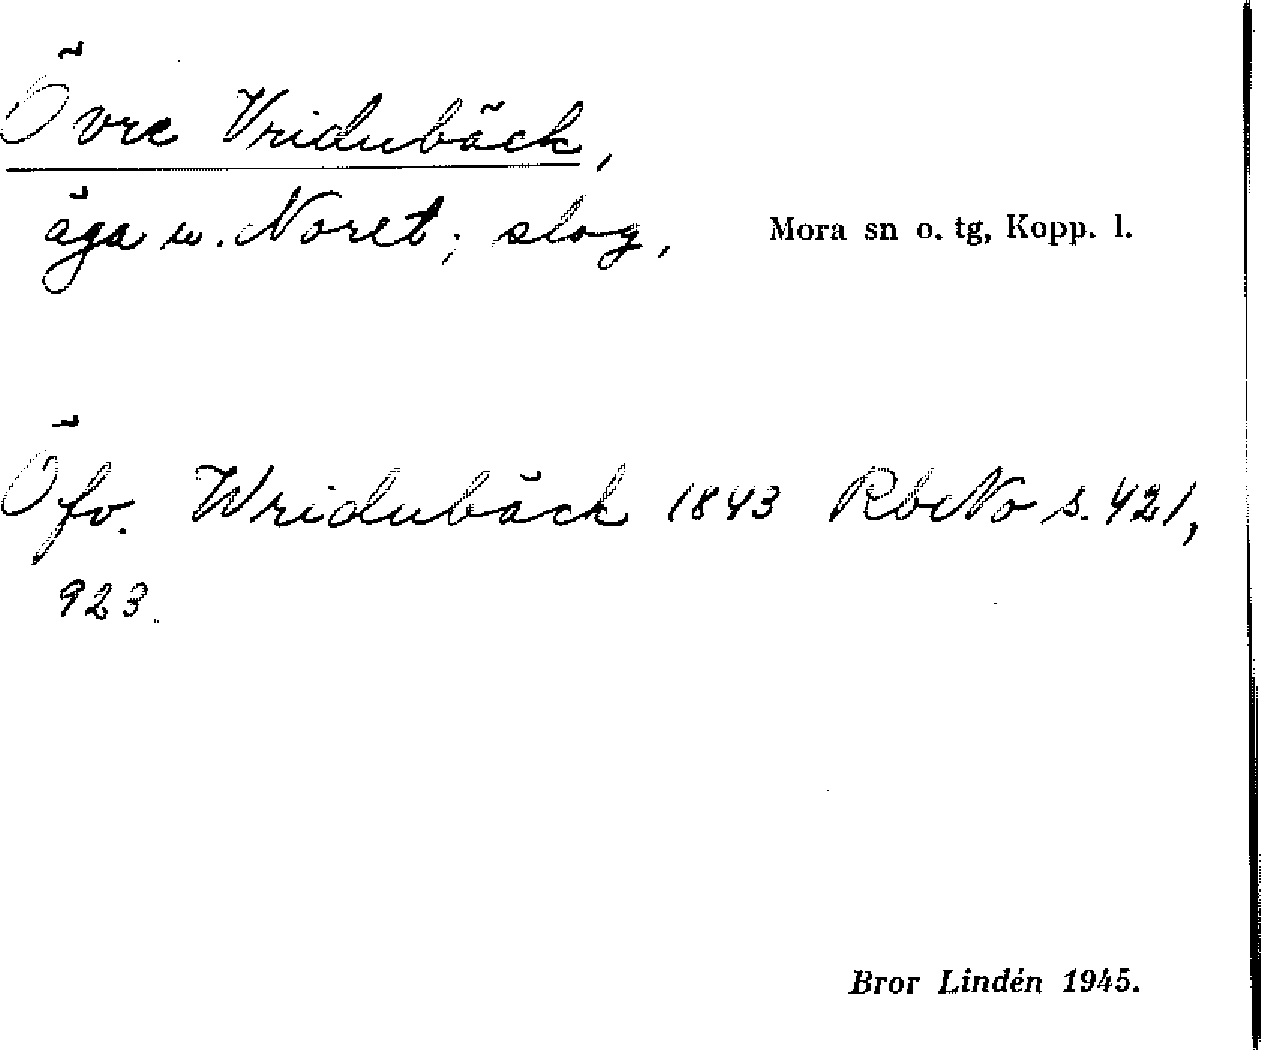 Övre Vridubäck,
äga u. Noret; slog, Mora sn o. tg, Kopp. l.
Öfv. Wridubäck 1843 RbNo s. 421,
923.
Bror Lindén 1945.